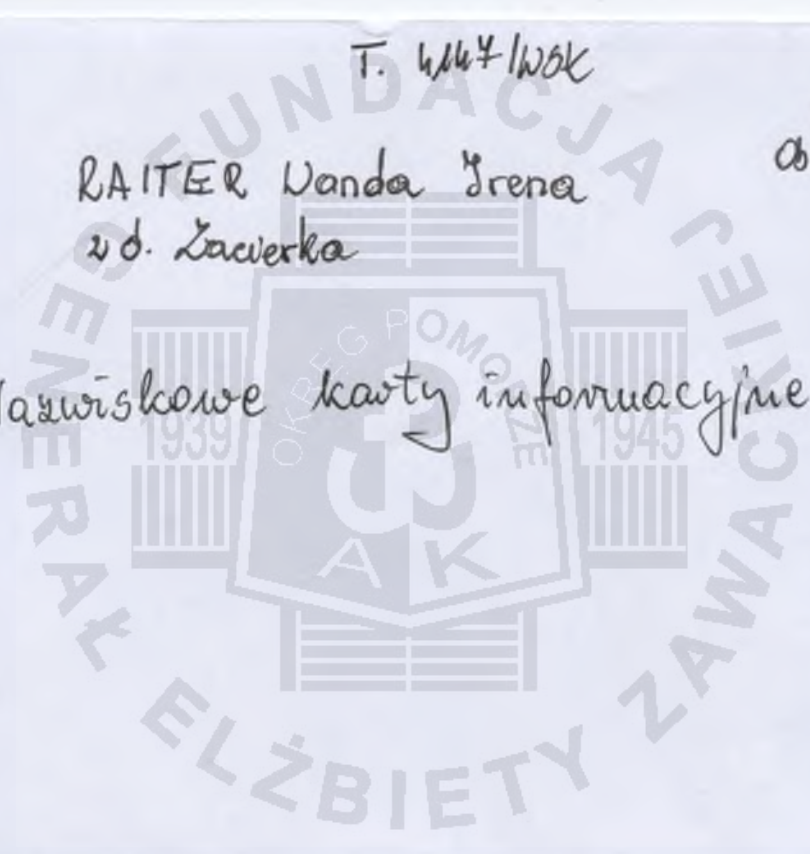 T. 4147/WSK
RAITER Wanda Irena
z d. Zacwerka
Nazwiskowe karty informacyjne
FUNDACJA GENERAŁ ELŻBIETY ZAWACKIEJ
OKRĘG POMORZE
1939
1945
AK